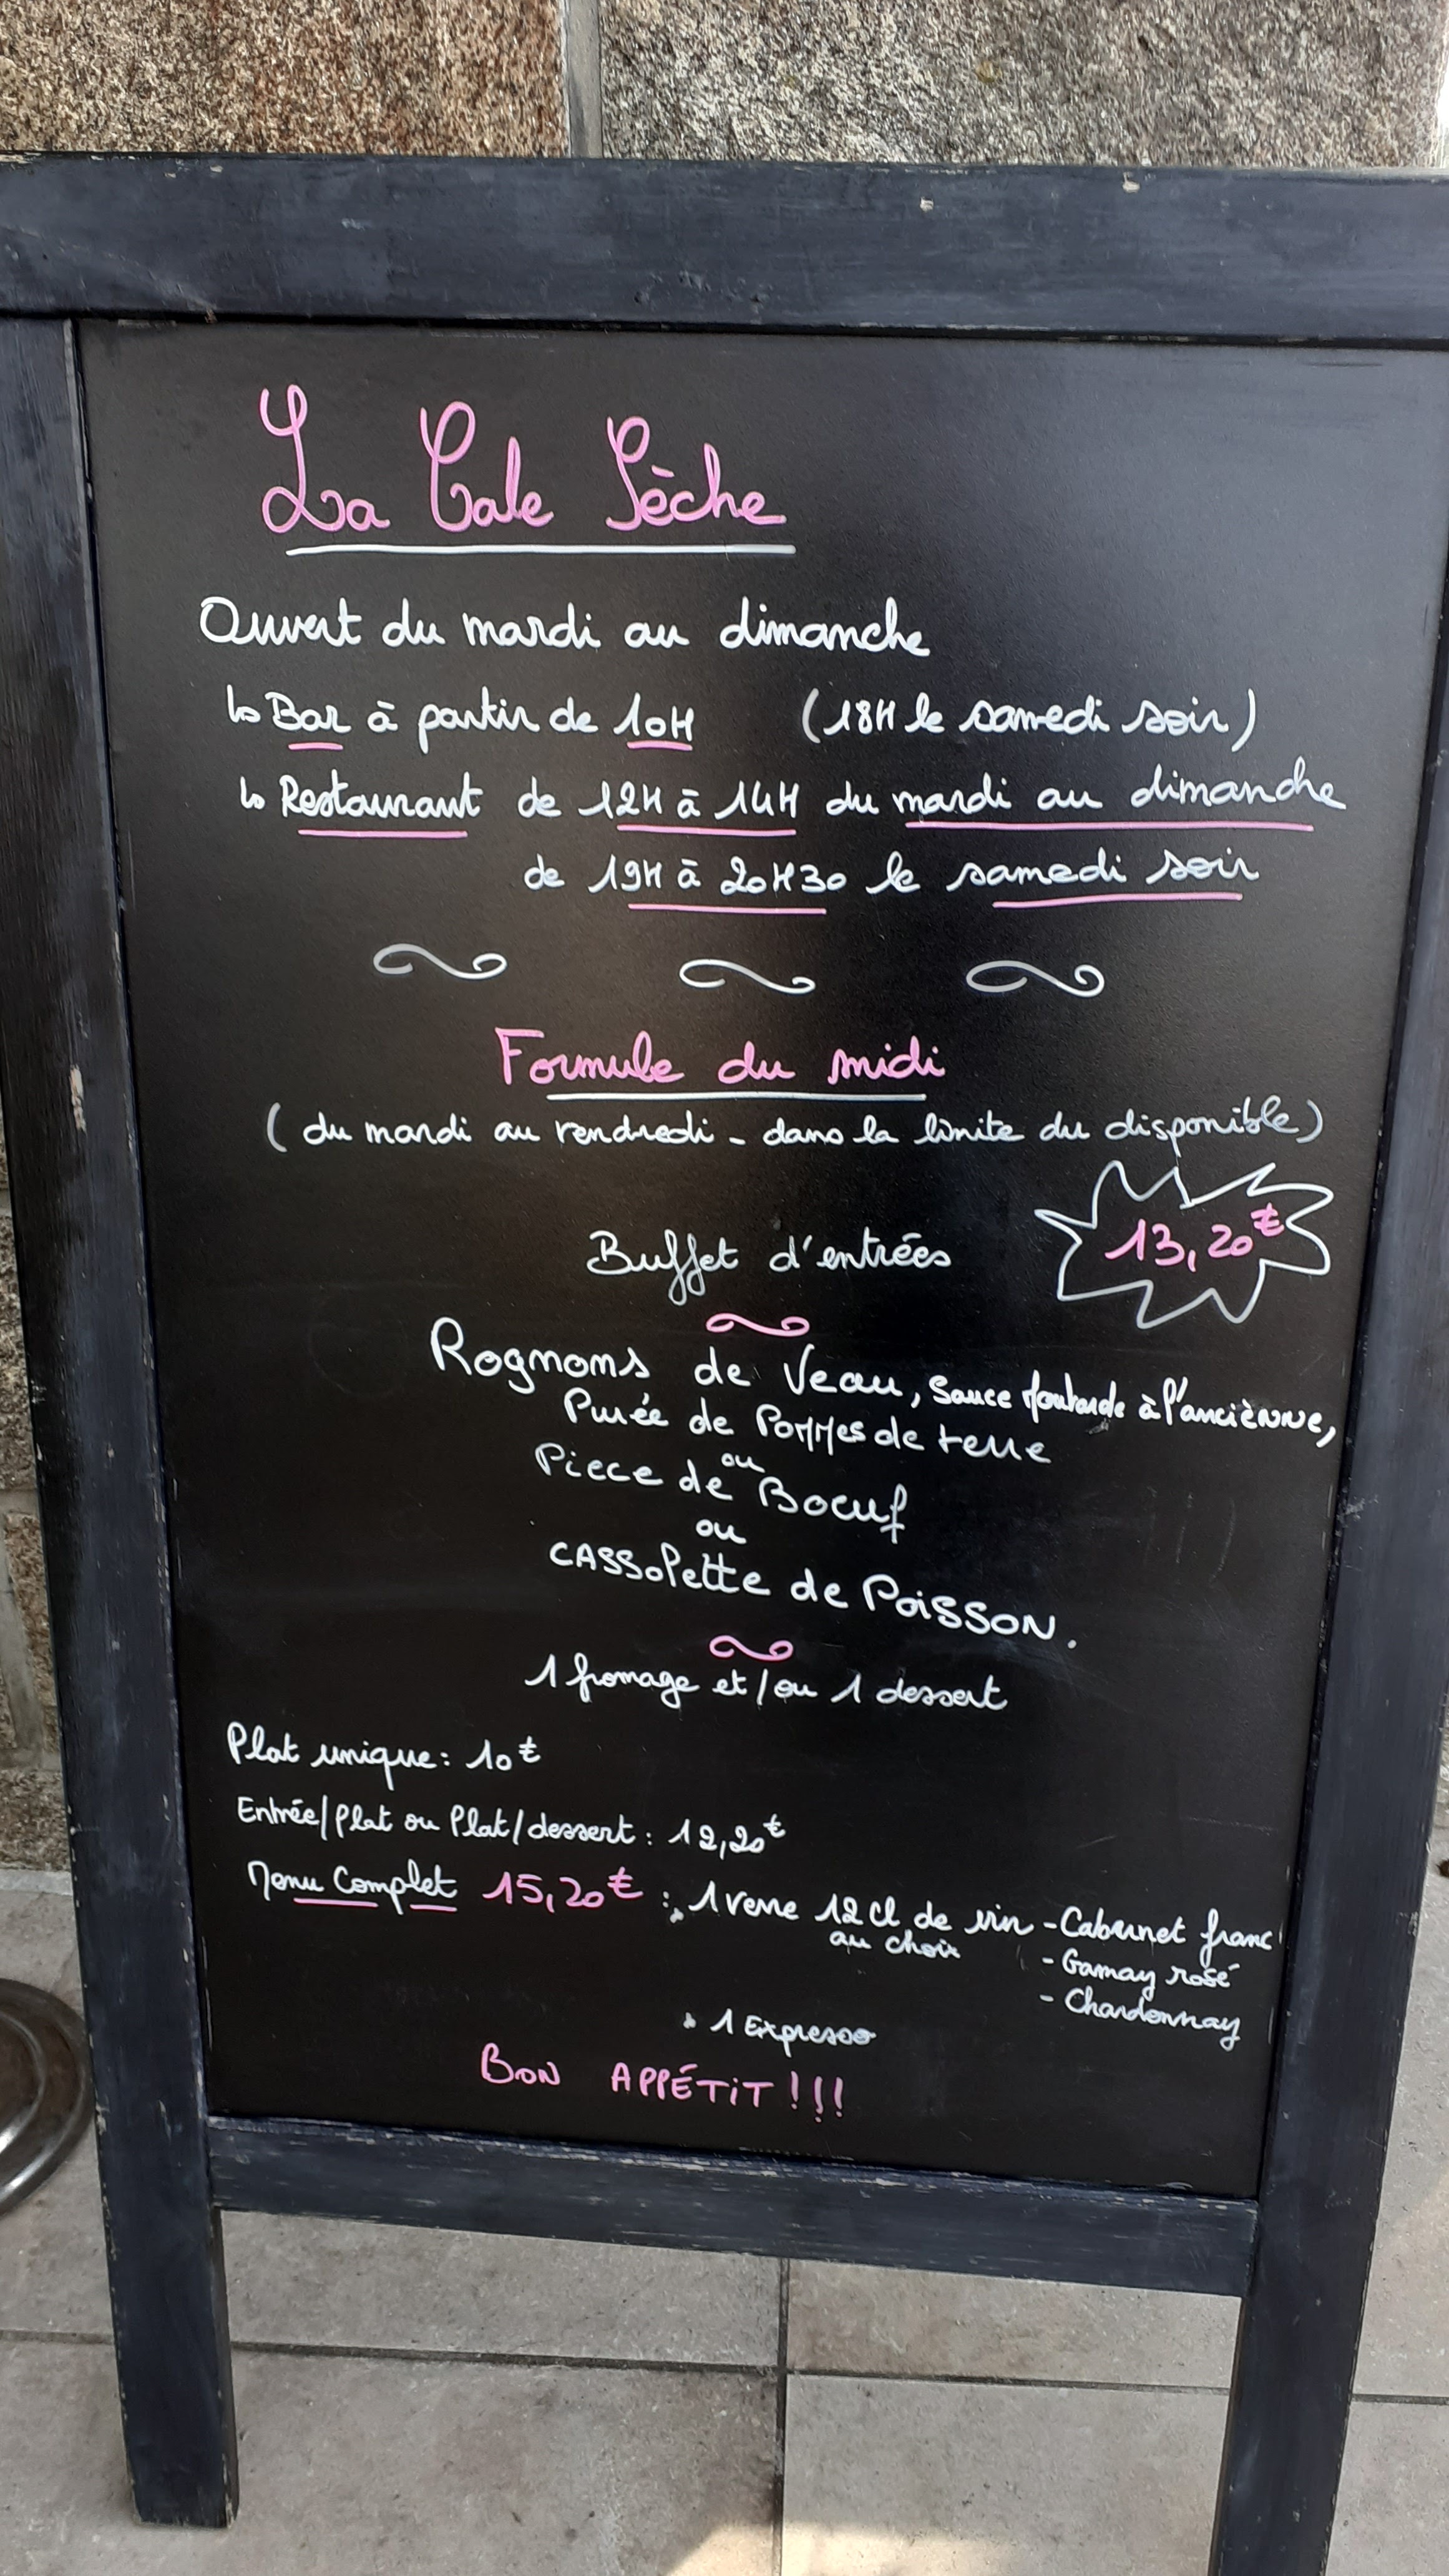 La Cale Sèche
Ouvert du mardi au dimanche
↳ Bar à partir de 10H (18H le samedi soir)
↳ Restaurant de 12H à 14H du mardi au dimanche
de 19H à 20H30 le samedi soir
Formule du midi
(du mardi au vendredi - dans la limite du disponible)
13,20€
Buffet d'entrées
Rognons de Veau, Sauce Moutarde à l'anciènne,
Purée de Pommes de terre
ou
Piece de Boeuf
ou
CASSOlette de POiSSON.
1 fromage et/ou 1 dessert
Plat unique : 10€
Entrée/Plat ou Plat/dessert : 12,20€
Menu Complet 15,20€ : • 1 verre 12 cl de vin - Cabernet franc
au choix - Gamay rosé
- Chardonnay
• 1 Expresso
BON APPÉTiT !!!